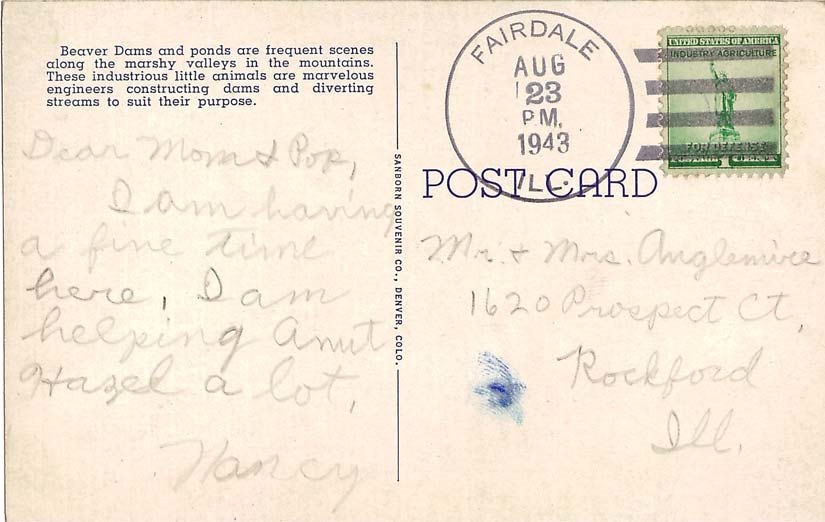 Beaver Dams and ponds are frequent scenes
along the marshy valleys in the mountains.
These industrious little animals are marvelous
engineers constructing dams and diverting
streams to suit their purpose.
Dear Mom & Pop,
I am having
a fine time
here, I am
helping Anut
Hazel a lot,
Nancy
SANBORN SOUVENIR CO., DENVER, COLO.
FAIRDALE
AUG
23
P.M.
1943
ILL.
UNITED STATES OF AMERICA
INDUSTRY AGRICULTURE
FOR DEFENSE
POST CARD
Mr. & Mrs. Anglemire
1620 Prospect Ct,
Rockford
Ill.